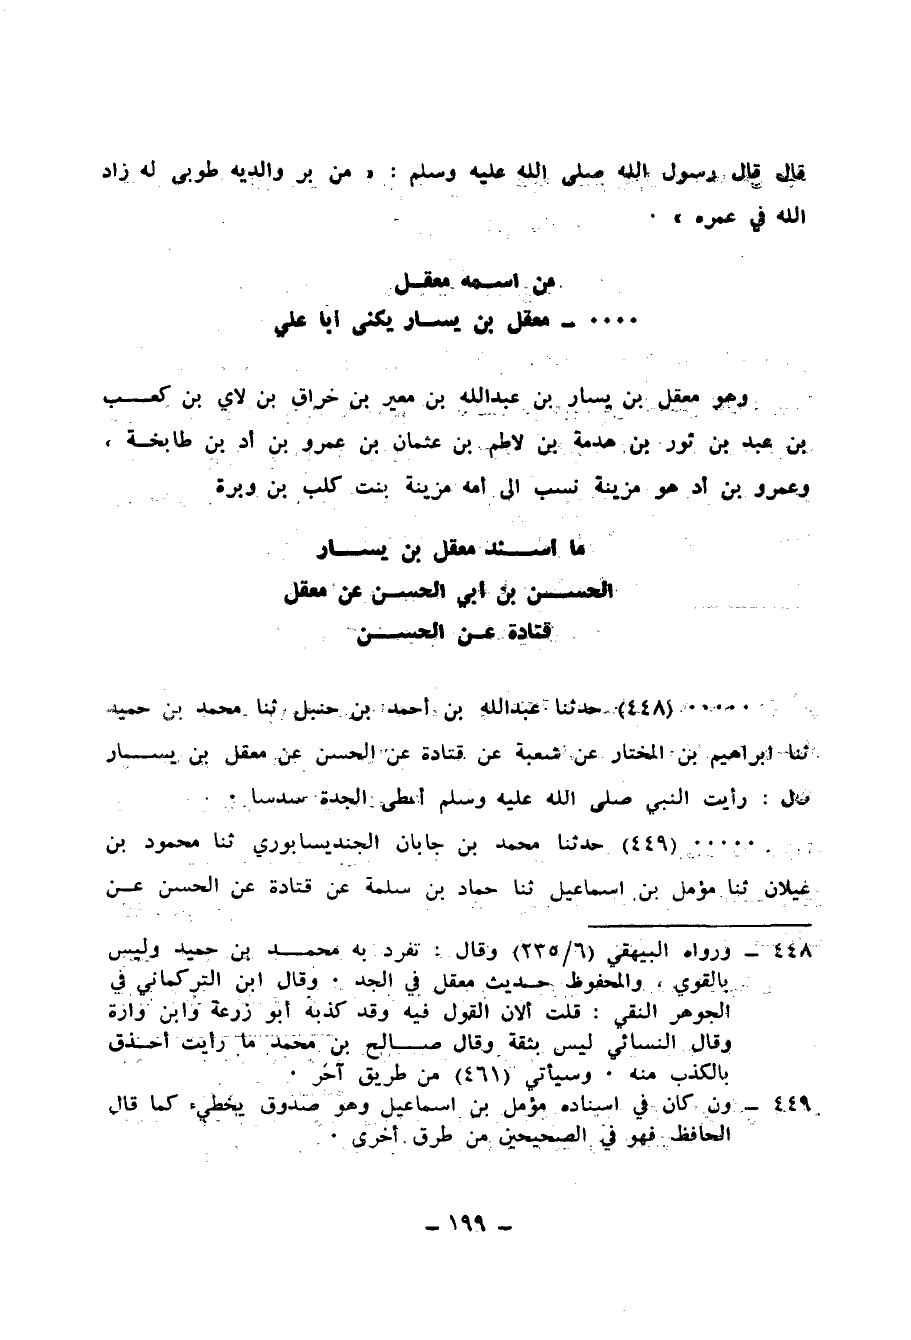 قال قال رسول الله صلى الله عليه وسلم : « من بر والديه طوبى له زاد
الله في عمره » ٠
من اسمه معقل
٠٠٠٠ ـ معقل بن يسار يكنى أبا علي
وهو معقل بن يسار بن عبدالله بن معير بن خراق بن لاي بن كعب
بن عبد بن ثور بن هدمة بن لاطم بن عثمان بن عمرو بن أد بن طابخة ،
وعمرو بن أد هو مزينة نسب الى أمه مزينة بنت كلب بن وبرة
ما أسند معقل بن يسار
الحسن بن أبي الحسن عن معقل
قتادة عن الحسن
٠٠٠٠٠ (٤٤٨) حدثنا عبدالله بن أحمد بن حنبل ثنا محمد بن حميد
ثنا ابراهيم بن المختار عن شعبة عن قتادة عن الحسن عن معقل بن يسار
قال : رأيت النبي صلى الله عليه وسلم أعطى الجدة سدسا ٠
٠٠٠٠٠ (٤٤٩) حدثنا محمد بن جابان الجنديسابوري ثنا محمود بن
غيلان ثنا مؤمل بن اسماعيل ثنا حماد بن سلمة عن قتادة عن الحسن عن
٤٤٨ ـ ورواه البيهقي (٢٣٥/٦) وقال : تفرد به محمد بن حميد وليس
بالقوي ، والمحفوظ حديث معقل في الجد ٠ وقال ابن التركماني في
الجوهر النقي : قلت ألان القول فيه وقد كذبه أبو زرعة وابن وارة
وقال النسائي ليس بثقة وقال صالح بن محمد ما رأيت أحذق
بالكذب منه ٠ وسيأتي (٤٦١) من طريق آخر ٠
٤٤٩ ـ ون كان في اسناده مؤمل بن اسماعيل وهو صدوق يخطيء كما قال
الحافظ فهو في الصحيحين من طرق أخرى ٠
ـ ١٩٩ ـ